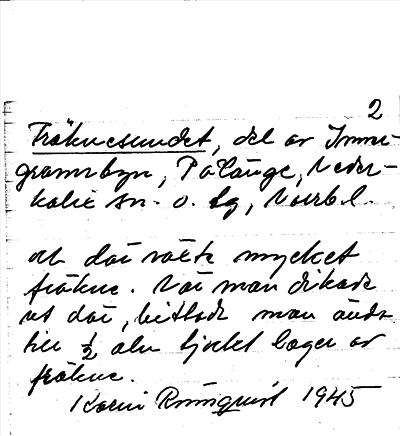 2
Fräknesundet, del av Imme-
gramsbyn, Pålänge, Neder-
kalix sn. o. lg, Norrb. l.
och där växte mycket
fräkne. När man dikade
ut där, hittade man ända
till ½ aln tjockt lager av
fräkne.
Karin Rönnquist 1945